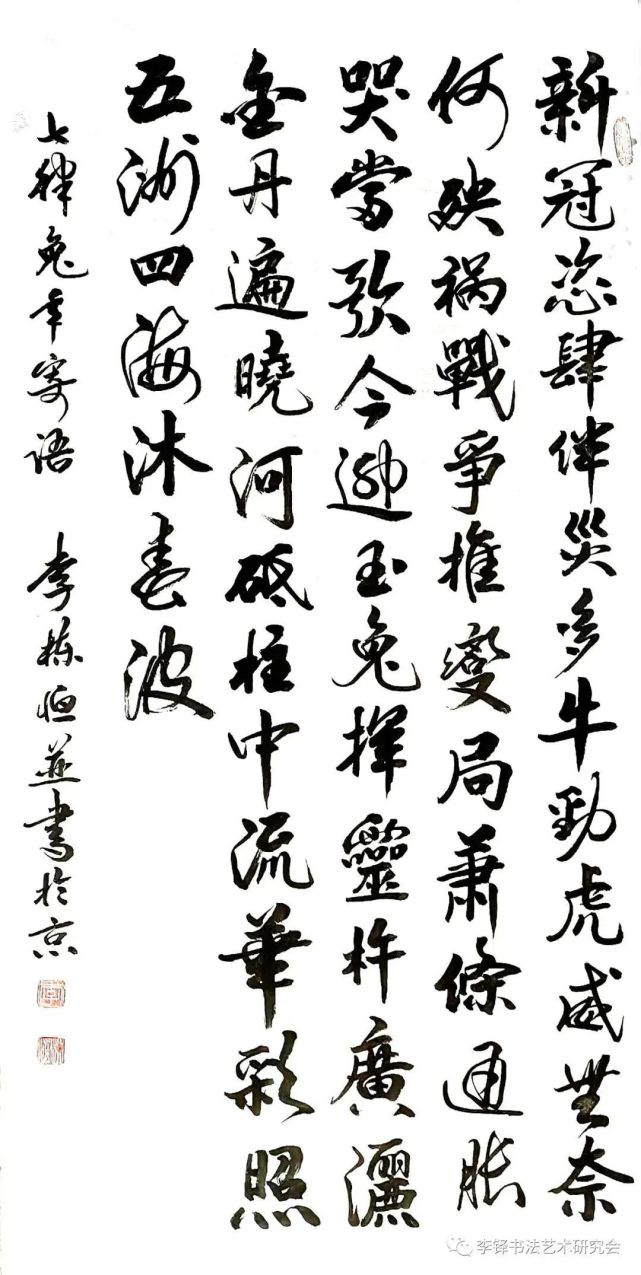 新冠恣肆伴災多牛勁虎威無奈
何殃禍戰爭推變局蕭條通脹
哭當歌今迎玉兔揮靈杵廣灑
金丹遍曉河砥柱中流華彩照
五洲四海沐春波
七律兔年寄語 李棟恒並書於京
李铎书法艺术研究会